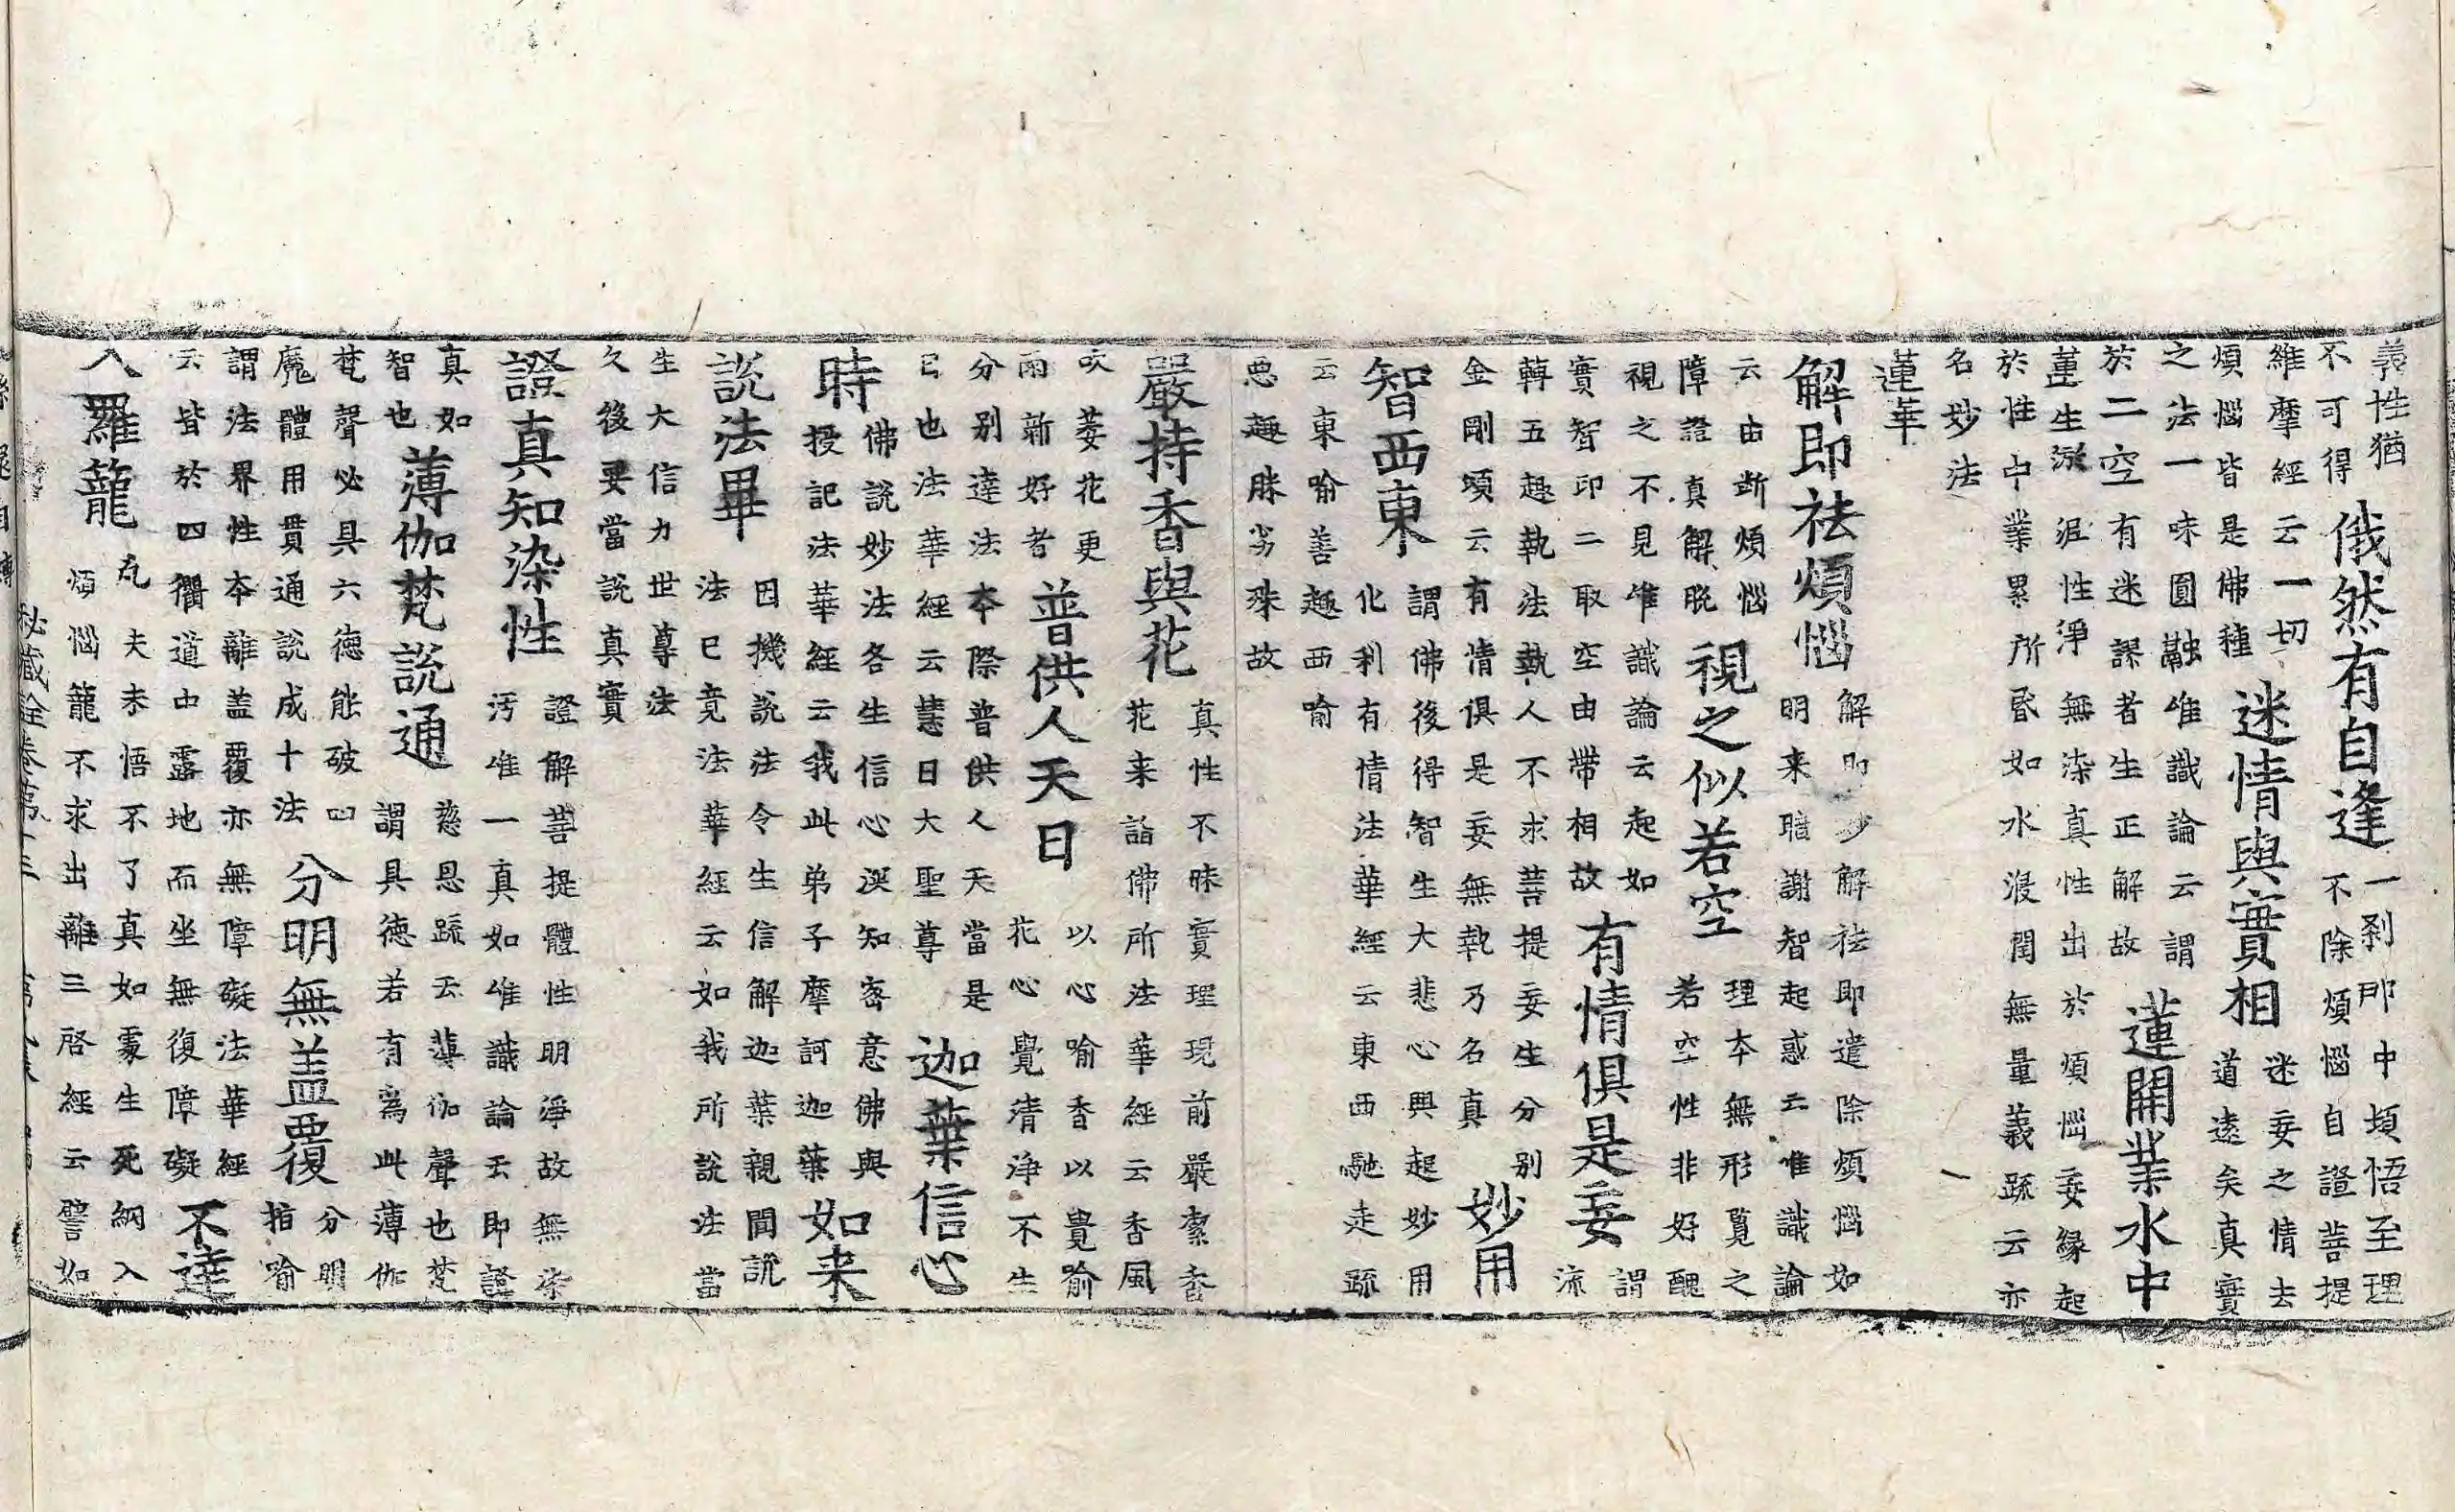 義性猶
不可得
俄然有自逢
一剎那中頓悟至理
不除煩惱自證菩提
維摩經云一切
煩惱皆是佛種
迷情與實相
迷妄之情去
道遠矣真實
之法一味圓融唯識論云謂
於二空有迷謬者生正解故
蓮開業水中
蓮生淤泥性淨無染真性出於煩惱妄緣起
於性中業累所昏如水浸潤無量義疏云亦
名妙法
蓮華
解即祛煩惱
解即妙解祛即遣除煩惱如
明来暗謝智起惑亡唯識論
云由斷煩惱
障證真解脫
視之似若空
理本無形覓之
若空性非好醜
視之不見唯識論云起如
實智印二取空由帶相故
有情俱是妄
謂
流
轉五趣執法執人不求菩提妄生分別
金剛頌云有情俱是妄無執乃名真
妙用
智西東
謂佛後得智生大悲心興起妙用
化利有情法華經云東西馳走疏
云東喻善趣西喻
惡趣勝劣殊故
嚴持香與花
真性不昧實理現前嚴潔香
花来詣佛所法華經云香風
吹萎花更
雨新好者
普供人天日
以心喻香以覺喻
花心覺清淨不生
分別達法本際普供人天當是
已也法華經云慧日大聖尊
迦葉信心
時
佛說妙法各生信心深知密意佛與
授記法華經云我此弟子摩訶迦葉
如来
說法畢
因機說法令生信解迦葉親聞說
法已竟法華經云如我所說法當
生大信力世尊法
久後要當說真實
證真知染性
證解菩提體性明淨故無染
汚唯一真如唯識論云即證
真如
智也
薄伽梵說通
慈恩疏云薄伽聲也梵
謂具德若有為此薄伽
梵聲必具六德能破四
魔體用貫通說成十法
分明無盖覆
分明
指喻
謂法界性本離盖覆亦無障礙法華經
云皆於四衢道中露地而坐無復障礙
不達
入羅籠
凡夫未悟不了真如處生死網入
煩惱籠不求出離三啓經云譬如
秘藏詮卷第十三